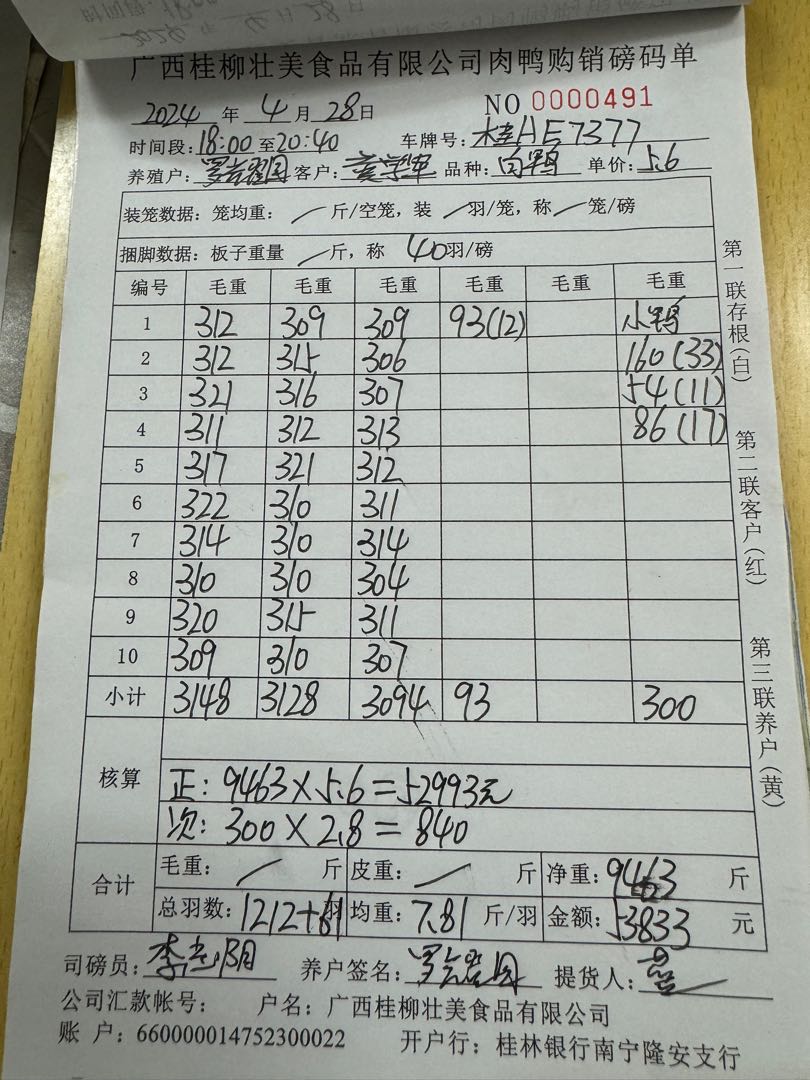 广西桂柳壮美食品有限公司肉鸭购销磅码单
2024 年 4 月 28 日 NO 0000491
时间段: 18:00 至 20:40 车牌号: 桂HE7377
养殖户: 客户: 品种: 白鸭 单价: 5.6
装笼数据: 笼均重: / 斤/空笼, 装 / 羽/笼, 称 / 笼/磅
捆脚数据: 板子重量 / 斤, 称 40 羽/磅
编号 毛重 毛重 毛重 毛重 毛重 毛重
1 312 309 309 93(12) 小鸭
2 312 315 306 160(33)
3 321 316 307 54(11)
4 311 312 313 86(17)
5 317 321 312
6 322 310 311
7 314 310 314
8 310 310 304
9 320 315 311
10 309 310 307
小计 3148 3128 3094 93 300
核算
正: 9463×5.6=52993元
次: 300×2.8=840
合计
毛重: / 斤 皮重: / 斤 净重: 9463 斤
总羽数: 1212+61 羽 均重: 7.81 斤/羽 金额: 53833 元
司磅员: 养户签名: 提货人:
公司汇款帐号: 户名: 广西桂柳壮美食品有限公司
账 户: 660000014752300022 开户行: 桂林银行南宁隆安支行
第一联存根(白)
第二联客户(红)
第三联养户(黄)